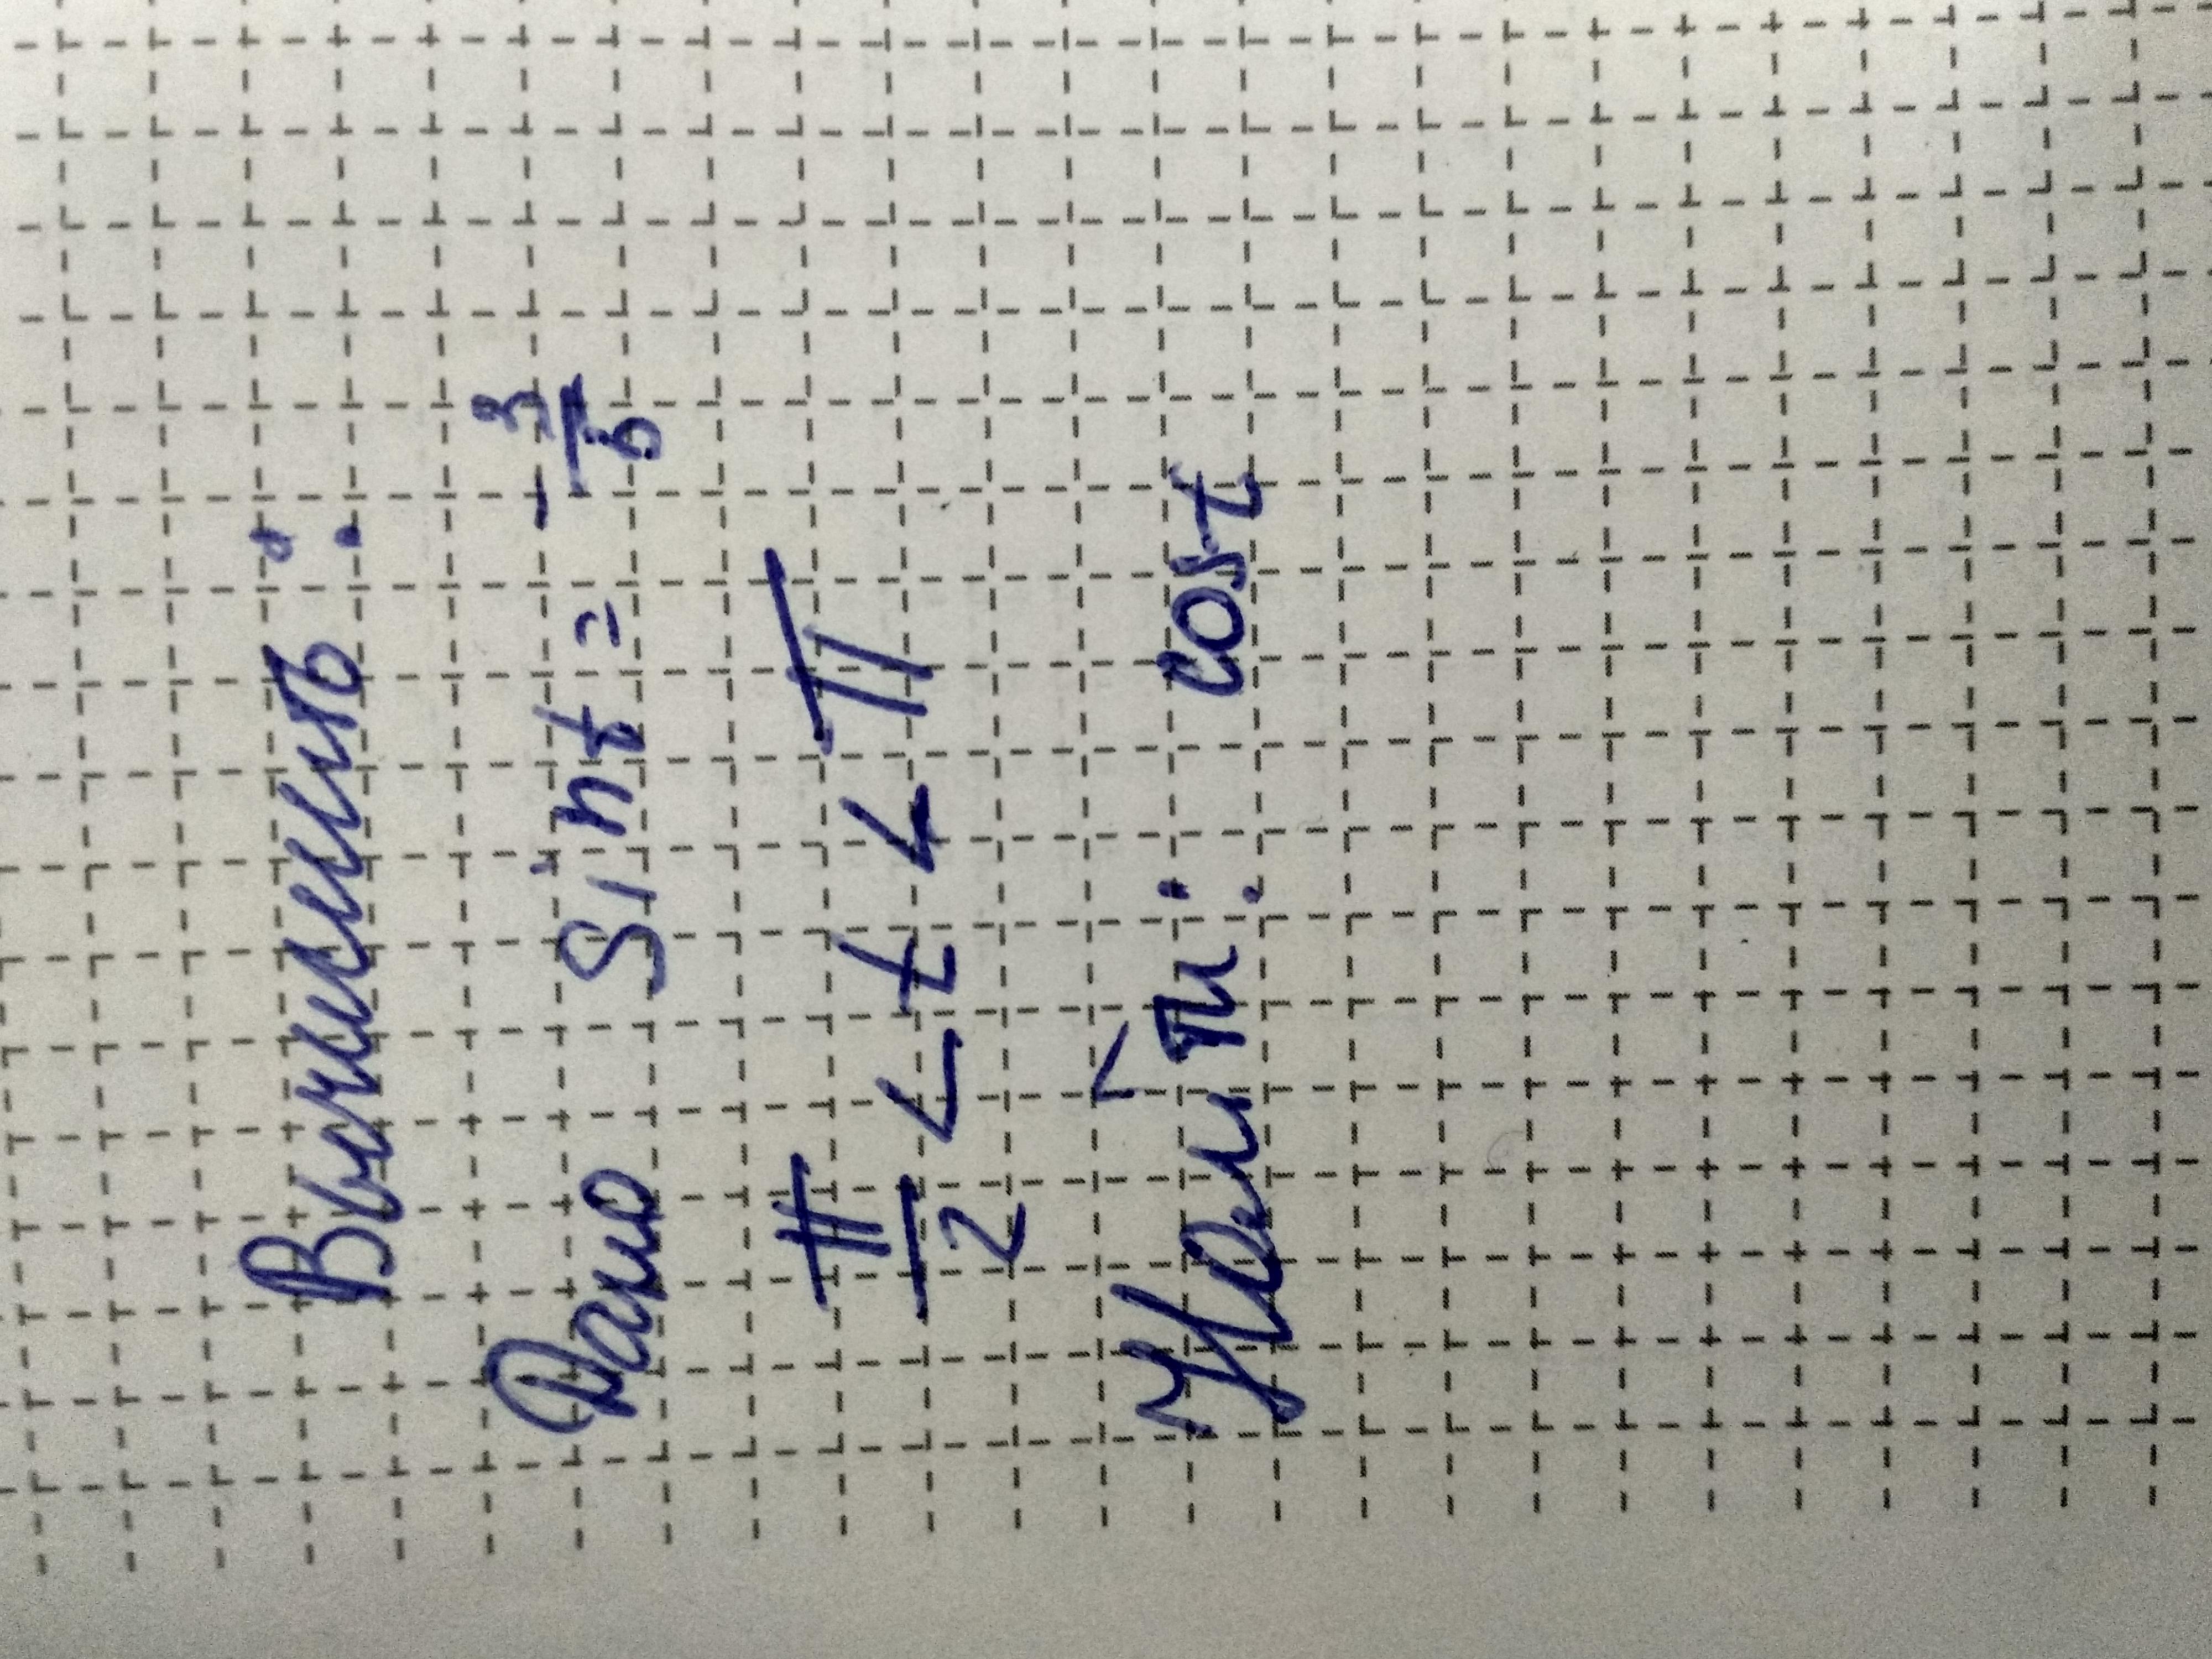 Вычислить:
Дано Sint = - 3/5
π/2 < t < π
Найти: cost